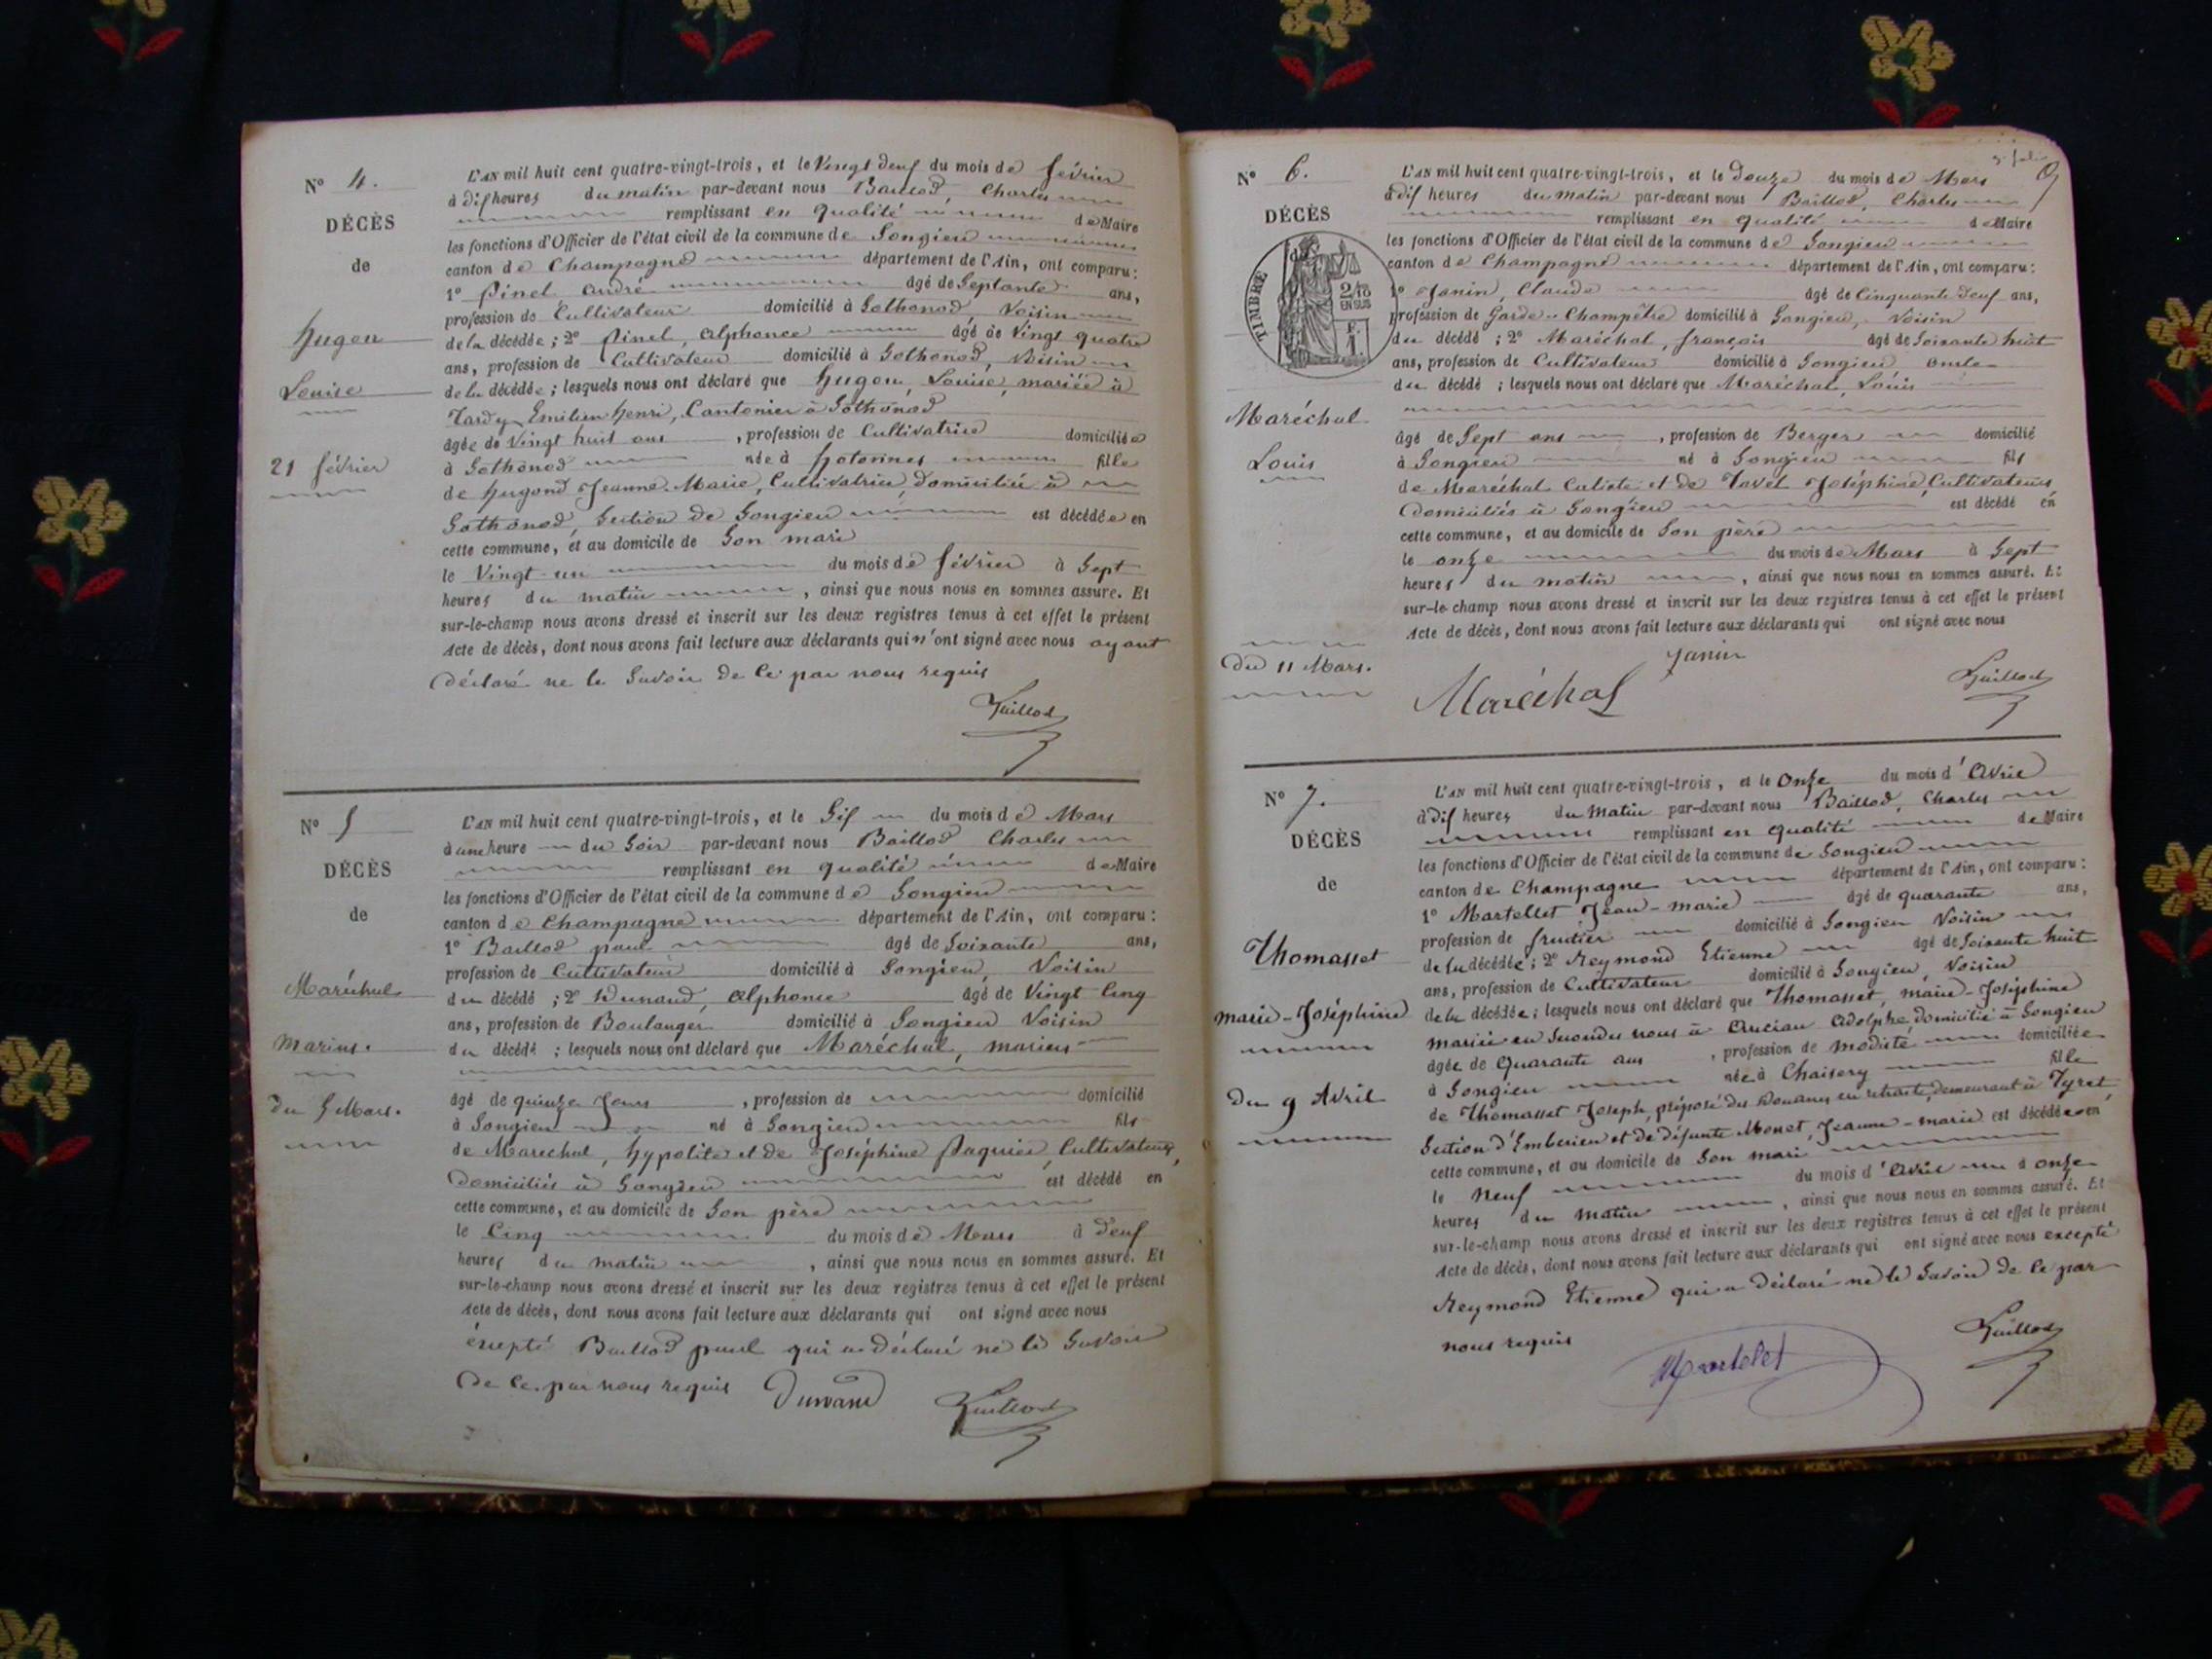 N° 4.
DÉCÈS
de
Hugon
Louise
21 février
L'AN mil huit cent quatre-vingt-trois, et le Vingt deux du mois de février
à dix heures du matin par-devant nous Baillod, Charles
remplissant en qualité de Maire
les fonctions d'Officier de l'état civil de la commune de Songieu
canton de Champagne département de l'Ain, ont comparu :
1° Pinel André âgé de Septante ans,
profession de Cultivateur domicilié à Sothonod, Voisin
de la décédée ; 2° Pinel, Alphonce âgé de Vingt quatre
ans, profession de Cultivateur domicilié à Sothonod, Voisin
de la décédée ; lesquels nous ont déclaré que Hugon, Louise, mariée à
Tardy Emilien Henri, Cantonier à Sothonod
âgée de Vingt huit ans , profession de Cultivatrice domiciliée
à Sothonod née à Hotonnes fille
de Hugond Jeanne-Marie, Cultivatrice, domiciliée à
Sothonod, Section de Songieu est décédée en
cette commune, et au domicile de Son mari
le Vingt-un du mois de février à Sept
heures du matin , ainsi que nous nous en sommes assuré. Et
sur-le-champ nous avons dressé et inscrit sur les deux registres tenus à cet effet le présent
Acte de décès, dont nous avons fait lecture aux déclarants qui n'ont signé avec nous ayant
déclaré ne le Savoir de Ce par nous requis
Baillod
N° 5
DÉCÈS
de
Maréchal
Marius.
du 5 Mars.
L'AN mil huit cent quatre-vingt-trois, et le Six du mois de Mars
à une heure du Soir par-devant nous Baillod Charles
remplissant en qualité de Maire
les fonctions d'Officier de l'état civil de la commune de Songieu
canton de Champagne département de l'Ain, ont comparu :
1° Baillod paul âgé de Soixante ans,
profession de Cultivateur domicilié à Songieu, Voisin
du décédé ; 2° Dunand, Alphonce âgé de Vingt Cinq
ans, profession de Boulanger domicilié à Songieu Voisin
du décédé ; lesquels nous ont déclaré que Maréchal, marius
âgé de quinze Jours , profession de domicilié
à Songieu né à Songieu fils
de Marechal, Hypolite et de Joséphine Paquier, Cultivateurs,
Domiciliés à Songieu est décédé en
cette commune, et au domicile de Son père
le Cinq du mois de Mars à deux
heures du matin , ainsi que nous nous en sommes assuré. Et
sur-le-champ nous avons dressé et inscrit sur les deux registres tenus à cet effet le présent
Acte de décès, dont nous avons fait lecture aux déclarants qui ont signé avec nous
éxepté Baillod paul qui a déclaré ne le Savoir
de Ce par nous requis Dunand Baillod
N° 6.
DÉCÈS
de
TIMBRE
2/10 EN SUS
Maréchal
Louis
du 11 Mars.
L'AN mil huit cent quatre-vingt-trois, et le douze du mois de Mars
à dix heures du matin par-devant nous Baillod, Charles
remplissant en qualité de Maire
les fonctions d'Officier de l'état civil de la commune de Songieu
canton de Champagne département de l'Ain, ont comparu :
1° Janin, Claude âgé de Cinquante deux ans,
profession de Garde-Champêtre domicilié à Songieu, Voisin
du décédé ; 2° Maréchal, françois âgé de Soixante huit
ans, profession de Cultivateur domicilié à Songieu oncle
du décédé ; lesquels nous ont déclaré que Maréchal, Louis
âgé de Sept ans , profession de Berger domicilié
à Songieu né à Songieu fils
de Maréchal Caliste et de Tavel Joséphine, Cultivateurs
Domiciliés à Songieu est décédé en
cette commune, et au domicile de Son père
le onze du mois de Mars à Sept
heures du matin , ainsi que nous nous en sommes assuré. Et
sur-le-champ nous avons dressé et inscrit sur les deux registres tenus à cet effet le présent
Acte de décès, dont nous avons fait lecture aux déclarants qui ont signé avec nous
Janin
Maréchal Baillod
N° 7.
DÉCÈS
de
Thomasset
marie-Joséphine
du 9 Avril
L'AN mil huit cent quatre-vingt-trois, et le Onze du mois d'Avril
à dix heures du Matin par-devant nous Baillod, Charles
remplissant en qualité de Maire
les fonctions d'Officier de l'état civil de la commune de Songieu
canton de Champagne département de l'Ain, ont comparu :
1° Martellet Jean-marie âgé de quarante ans,
profession de fruitier domicilié à Songieu Voisin
de la décédée ; 2° Reymond Etienne âgé de Soixante huit
ans, profession de Cultivateur domicilié à Songieu, Voisin
de la décédée ; lesquels nous ont déclaré que Thomasset, marie-Joséphine
mariée en Secondes noces à Ancian Adolphe domicilié à Songieu
âgée de Quarante ans , profession de modiste domiciliée
à Songieu née à Chaisery fille
de Thomasset Joseph, préposé des Douanes en retraite, demeurant à Tyret,
Section d'Emberieu et de défunte Monet, Jeanne-marie est décédée en
cette commune, et au domicile de Son mari
le Neuf du mois d'Avril à onze
heures du matin , ainsi que nous nous en sommes assuré. Et
sur-le-champ nous avons dressé et inscrit sur les deux registres tenus à cet effet le présent
Acte de décès, dont nous avons fait lecture aux déclarants qui ont signé avec nous excepté
Reymond Etienne qui a déclaré ne le Savoir de Ce par
nous requis
Martelet Baillod